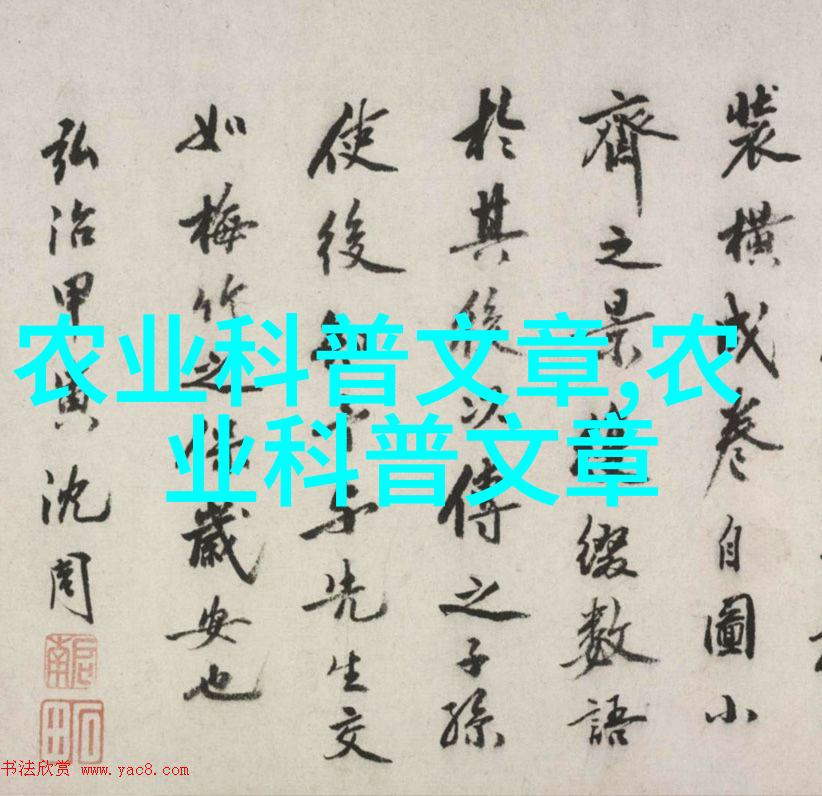 装横成卷自圖小
齊之景并綴數語
於其後以傳之子孫
使後知予與先生交
如梅竹之伴歲安也
弘治甲寅沈周
農业科普文章,农
业科普文章
书法欣赏 www.yac8.com